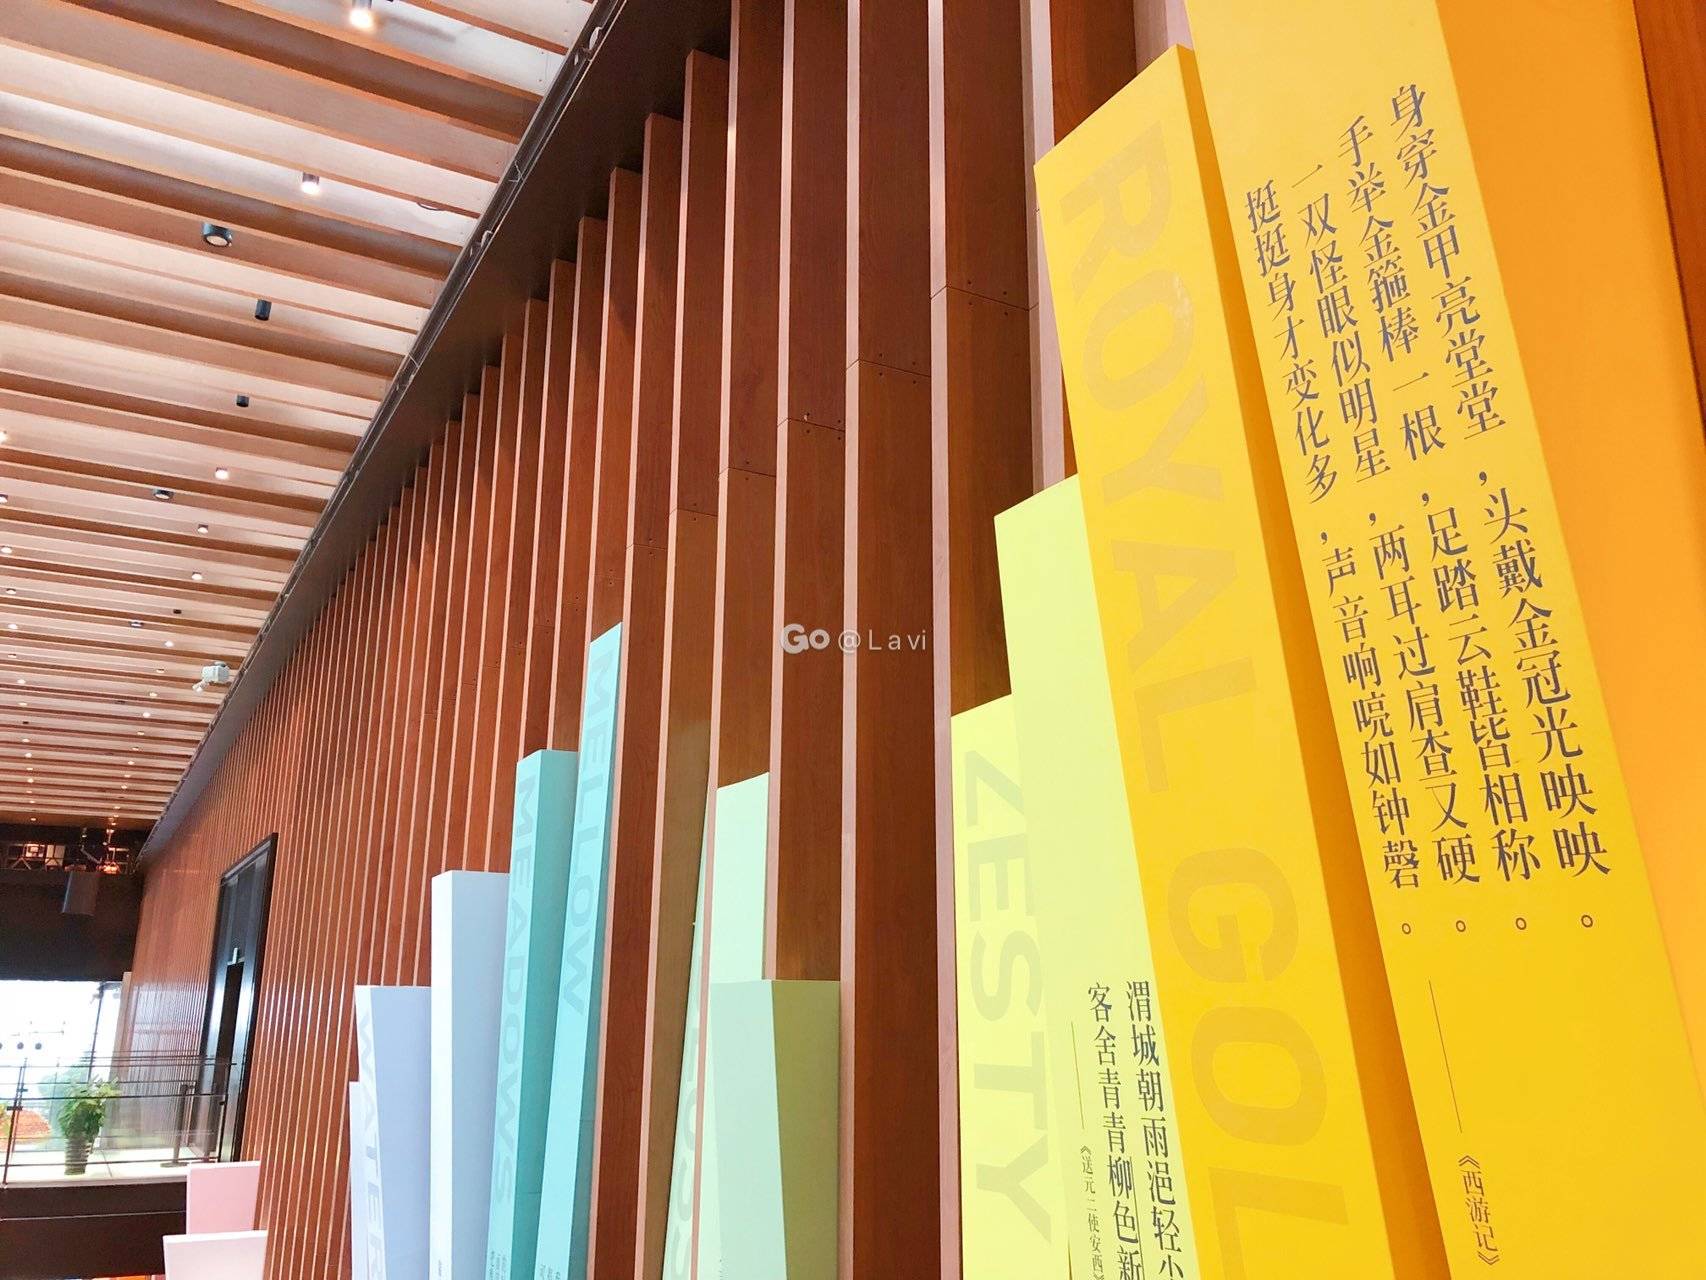 身穿金甲亮堂堂，头戴金冠光映映。
手举金箍棒一根，足踏云鞋皆相称。
一双怪眼似明星，两耳过肩查又硬。
挺挺身才变化多，声音响喨如钟磬。
——《西游记》
ROYAL GOL
渭城朝雨浥轻
客舍青青柳色新
——《送元二使安西》
ZESTY
MELLOW
MEADOWS
WATER
Go @Lavi